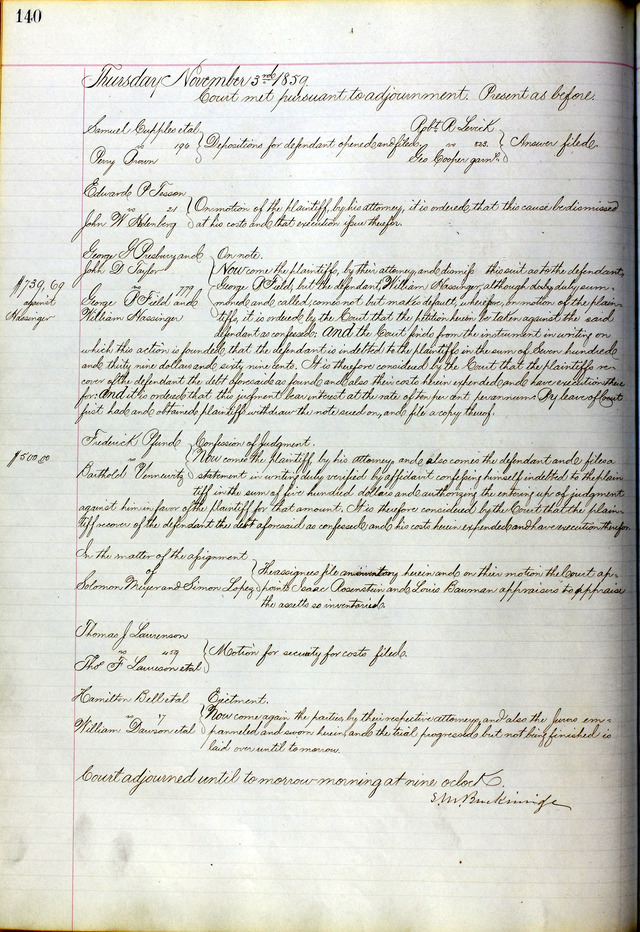 140
Thursday November 3rd 1859
Court met pursuant to adjournment. Present as before.
Samuel Cupples et al
vs 190
Perry Brown
Depositions for defendant opened and filed.
Robt. R. Levick
vs 523.
Geo Cooper garn.
Answer filed.
Edward P. Tesson
vs 21
John W.
On motion of the plaintiff, by his attorney, it is ordered, that this cause be dismissed
at his costs and that execution issue therefor.
$739,69
against
Hassinger
George S. Presbury and
John D. Taylor
vs 779
George P. Field and
William Hassinger
On note.
Now come the plaintiffs, by their attorney, and dismiss this suit as to the defendant,
George P. Field, but the defendant, William Hassinger, although duly sum-
moned and called, comes not but makes default, wherefore, on motion of the plain-
tiffs, it is ordered by the Court that the petition herein be taken against the said
defendant as confessed. And the Court finds from the instrument in writing on
which this action is founded, that the defendant is indebted to the plaintiffs in the sum of Seven hundred
and thirty nine dollars and sixty nine cents. It is therefore considered by the Court that the plaintiffs re-
cover of the defendant the debt aforesaid as found and also their costs herein expended and have execution there
for: and it is ordered that this judgment bear interest at the rate of ten per cent. per annum. By leave of Court
first had and obtained plaintiffs withdraw the note sued on, and file a copy thereof.
$500.00
Frederick Pfund
vs
Barthold
Confession of Judgment.
Now comes the plaintiff by his attorney, and also comes the defendant and files a
statement in writing duly verified by affidavit confessing himself indebted to the plain
tiff in the sum of five hundred dollars and authorizing the entering up of judgment
against him in favor of the plaintiff for that amount. It is therefore considered by the Court that the plain-
tiff recover of the defendant the debt aforesaid as confessed and his costs herein expended and have execution therefor.
In the matter of the assignment
of
Solomon Meyer and Simon Lopez
The assignees file an inventory herein and on their motion the Court ap-
points Isaac Rosenstein and Louis Bauman appraisers to appraise
the assets so inventoried.
Thomas J. Lawrenson
vs 459
Thos F. Laureson et al
Motion for security for costs filed.
Hamilton Bell et al
vs 7
William Dawson et al
Ejectment.
Now come again the parties by their respective attorneys, and also the Jurors em-
pannelled and sworn herein, and the trial progressed but not being finished is
laid over until to morrow.
Court adjourned until to morrow morning at nine oclock.